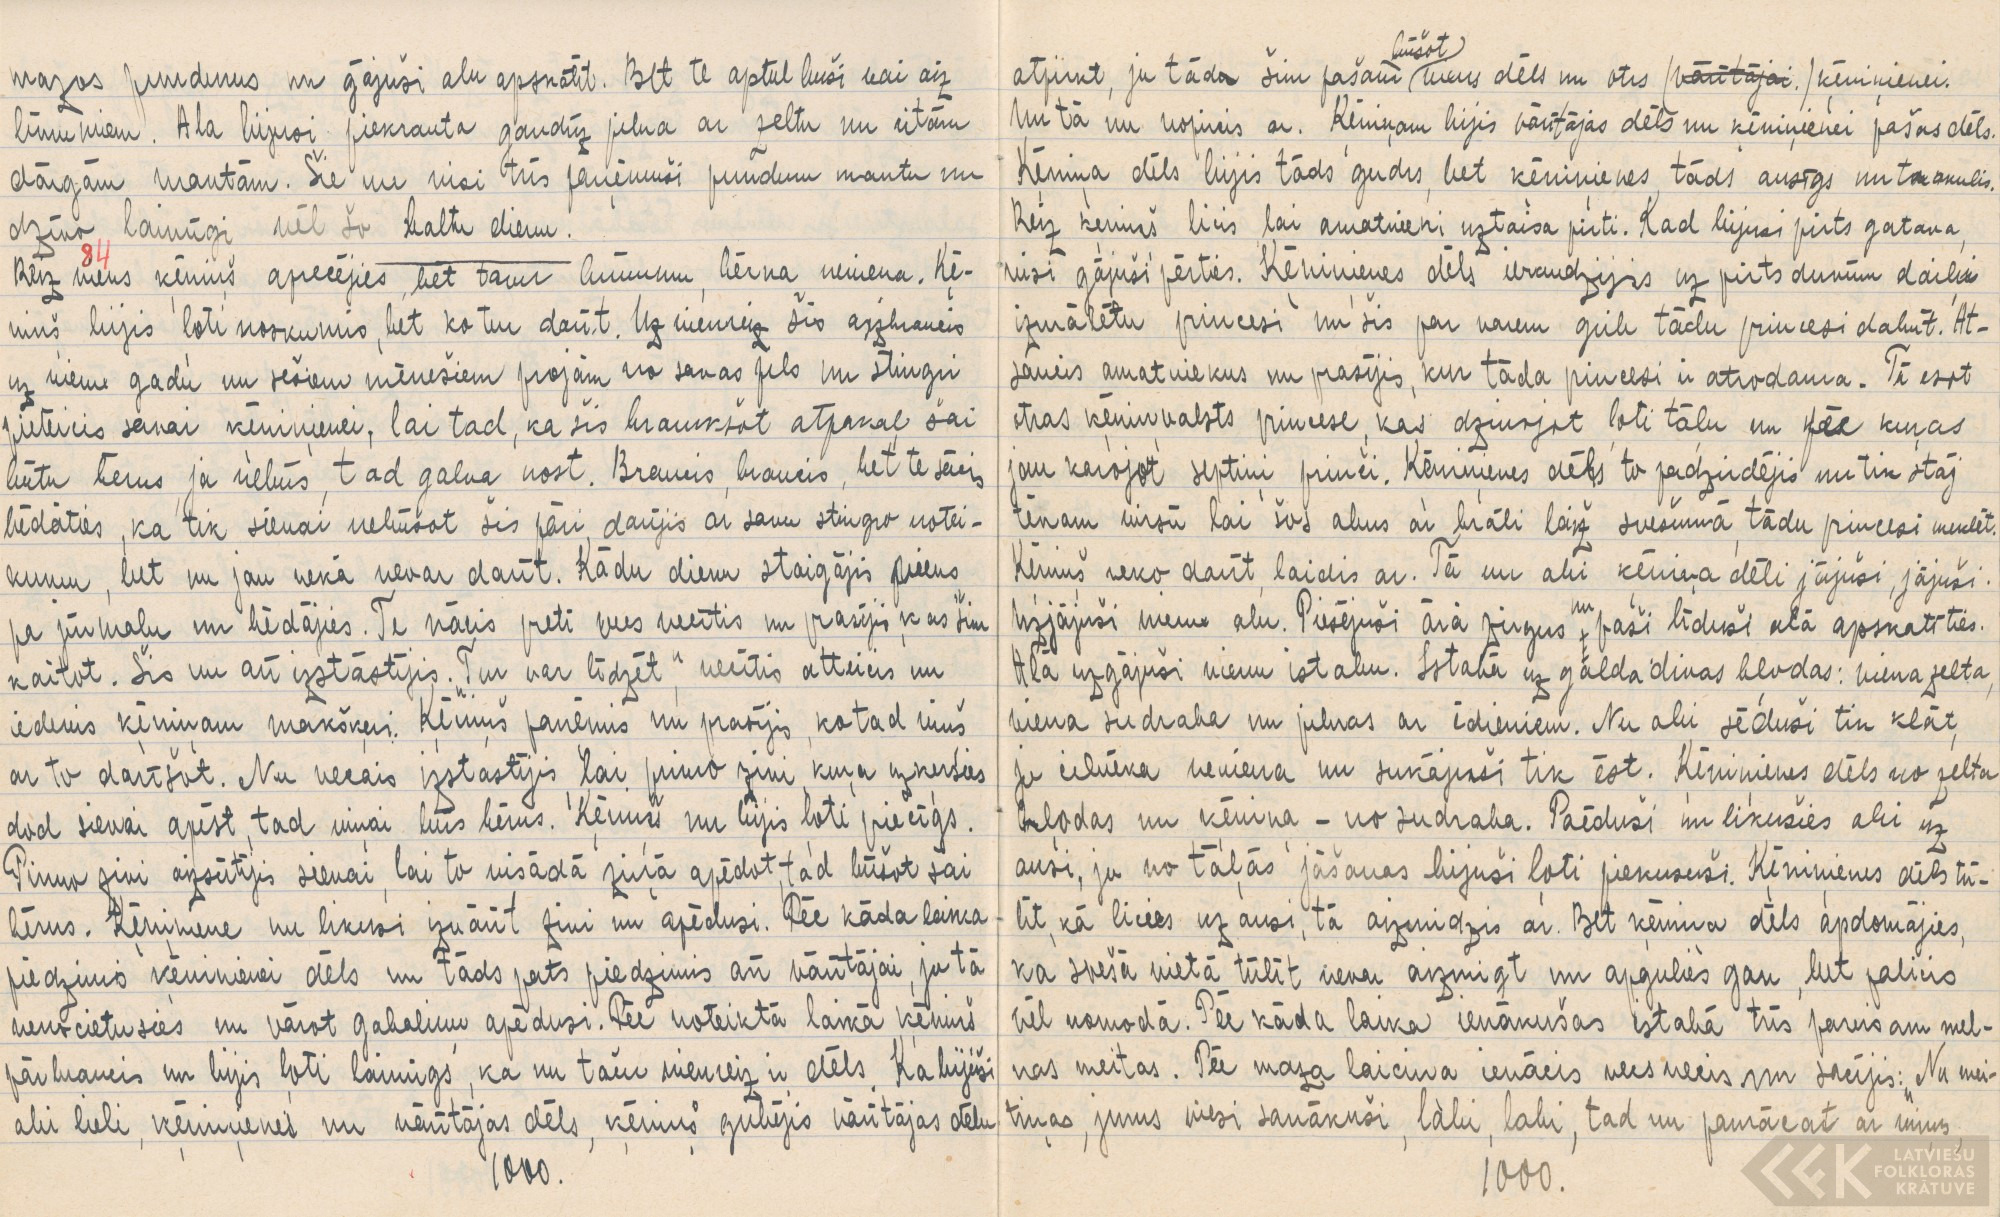 mazos pundurus un gājuši alu apskatīt. Bet te aptulbuši vai aiz
brīnumiem. Ala bijusi piekrauta gandrīz pilna ar zeltu un citām
dārgām mantām. Šie nu visi trīs paņēmuši punduru mantu un
dzīvo laimīgi vēl šo baltu dienu.
84
Reiz viens ķēniņš aprecējies, bet tavu brīnumu, bērna neviena. Ķē-
niņš bijis ļoti noskumis, bet ko tur darīt. Uz vienreiz šis aizbraucis
uz vienu gadu un sešiem mēnešiem projām no savas pils un stingri
pieteicis savai ķēniņienei, lai tad, ka šis braukšot atpakaļ šai
būtu bērns, ja nebūs, tad galva nost. Braucis, braucis, bet te sācis
bēdāties, ka tik sievai nebūšot šis pāri darījis ar savu stingro notei-
kumu, bet nu jau nekā nevar darīt. Kādu dienu staigājis
pa jūrmalu un bēdājies. Te nācis pretī vecs vecītis un prasījis, kas šim
kaitot. Šis nu arī izstāstījis. "Tur var līdzēt", vecītis atteicis un
iedevis ķēniņam makšķeri. Ķēniņš paņēmis un prasījis, ko tad viņš
ar to darīšot. Nu vecais izstāstījis, lai pirmo zivi, kuŗa uzķeŗsies
dod sievai apēst, tad viņai būs bērns. Ķēniņš nu bijis ļoti priecīgs.
Pirmo zivi aizsūtījis sievai, lai to visādā ziņā apēdot, tad būšot šai
bērns. Ķēniņiene nu likusi izvārīt zivi un apēdusi. Pēc kāda laika
piedzimis ķēniņienei dēls un tāds pats piedzimis arī vārītājai, jo tā
nenocietusies un vārot gabaliņu apēdusi. Pēc noteiktā laika ķēniņš
pārbraucis un bijis ļoti laimīgs, ka nu taču vienreiz ir dēls. Ka bijuši
abi lieli, ķēniņienei un vārītājas dēls, ķēniņš gribējis vārītājas dēlu
1000.
atpirkt, jo tādu šim pašam būšot viens dēls un otrs (vārītājai.) ķēniņienei.
Nu tā nu nopircis ar. Ķēniņam bijis vārītājas dēls un ķēniņienei pašas dēls.
Ķēniņa dēls bijis tāds gudrs, bet ķēniņienes, tāds ausīgs un traks.
Reiz ķēniņš licis, lai amatnieki uztaisa pirti. Kad bijusi pirts gatava,
visi gājuši pērties. Ķēniņienes dēls ieraudzījis uz pirts durvīm daiļi
izmālētu princesi un šis par varem grib tādu princesi dabūt. At-
saucis amatniekus un prasījis, kur tāda princesi ir atrodama. Tē esot
otras ķēniņvalsts princese, kas dzīvojot ļoti tālu un pēc kuŗas
jau karojot septiņi prinči. Ķēniņienes dēls to padzirdējis un tik stāj
tēvam virsū lai šos abus ar brāli laiž svešumā, tādu princesi meklēt.
Ķēniņš neko darīt, laidis ar. Tā nu abi ķēniņa dēli jājuši, jājuši.
Uzjājuši vienu alu. Piesējuši ārā zirgus un paši līduši alā apskatīties.
Alā uzgājuši vienu istabu. Istabā uz galda divas bļodas: viena zelta,
viena sudraba un pilnas ar ēdieniem. Nu abi sēduši tik klāt,
jo cilvēka neviena un sukājuši tik ēst. Ķēniņienes dēls no zelta
bļodas un ķēniņa – no sudraba. Paēduši un likušies abi uz
ausi, jo no tāļās jāšanas bijuši ļoti piekususi. Ķēniņienes dēls tū-
līt, kā licies uz ausi, tā aizmidzis ar. Bet ķēniņa dēls apdomājies,
ka svešā vietā tūlīt nevar aizmigt un apgulies gan, bet palicis
vēl nomodā. Pēc kāda laika ienākušas istabā trīs pavisam mel-
nas meitas. Pēc maza laiciņa ienācis vecs vecis un sacījis: "Nu mei-
tiņas, jums viesi sanākuši, labi, labi, tad nu pamācat ar viņus,
1000.
LATVIEŠU
FOLKLORAS
KRĀTUVE